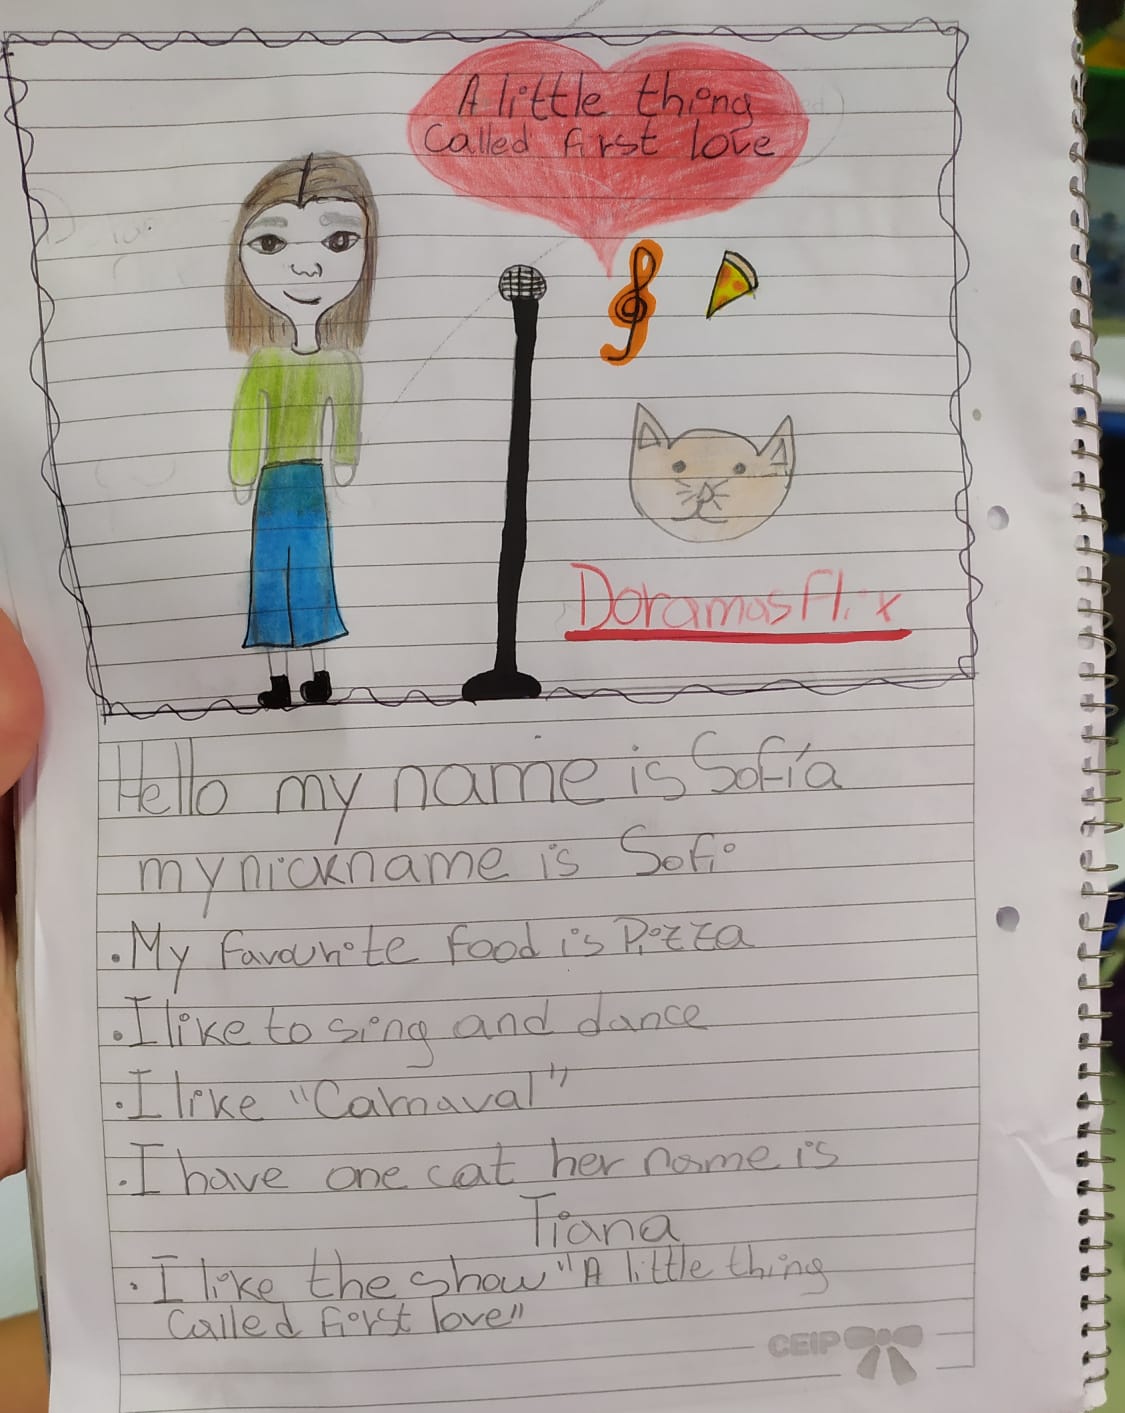 A little thing
Called first love
DoramasFlix
Hello my name is Sofía
my nickname is Sofi
. My favourite food is Pizza
. I like to sing and dance
. I like "Carnaval"
. I have one cat her name is
Tiana
. I like the show "A little thing
Called first love"
CEIP